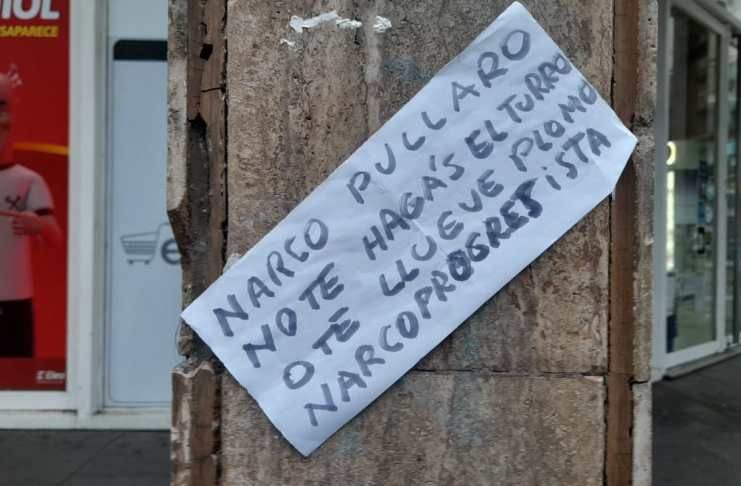 IOL
SAPARECE
NARCO PULLARO
NO TE HAGA'S EL TURRO
O TE LLUEVE PLOMO
NARCOPROGRESISTA